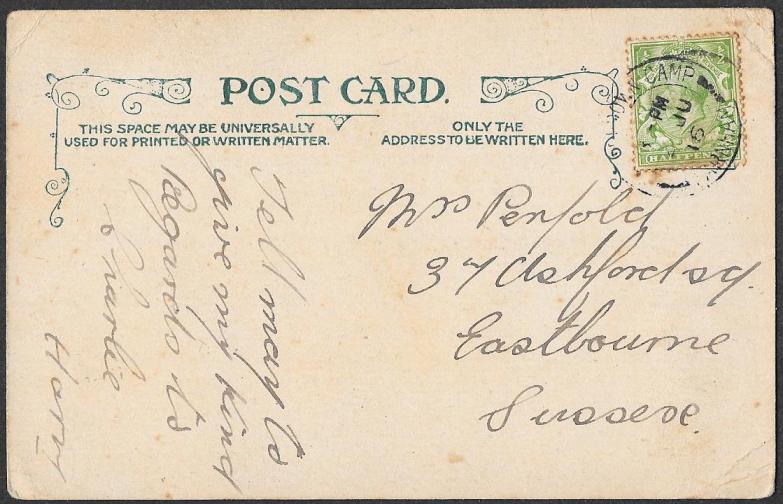 POST CARD.
THIS SPACE MAY BE UNIVERSALLY
USED FOR PRINTED OR WRITTEN MATTER.
ONLY THE
ADDRESS TO BE WRITTEN HERE.
CAMP
PM
JU
16
HALFPENNY
Tell may to
give my kind
Regards to
Charlie
Harry
Mrs Penfold
37 Ashford sq.
Eastbourne
Sussex.